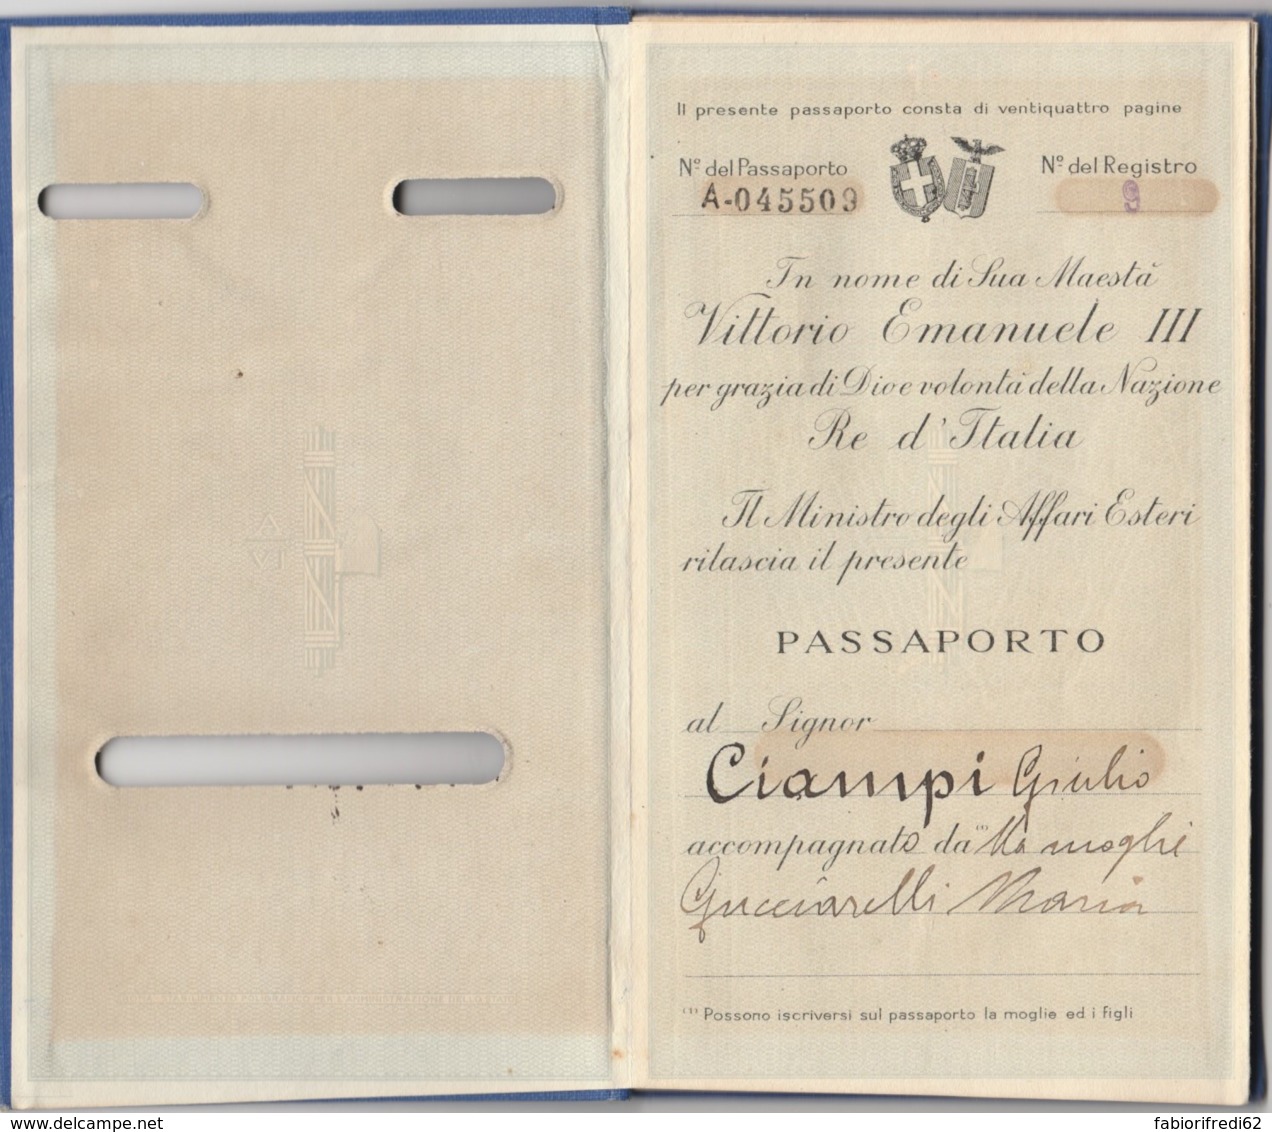 Il presente passaporto consta di ventiquattro pagine
Nº del Passaporto
A-045509
Nº del Registro
9
In nome di Sua Maestà
Vittorio Emanuele III
per grazia di Dio e volontà della Nazione
Re d'Italia
Il Ministro degli Affari Esteri
rilascia il presente
PASSAPORTO
al Signor
Ciampi Giulio
accompagnato da (1) la moglie
Gucciarelli Maria
(1) Possono iscriversi sul passaporto la moglie ed i figli
www.delcampe.net
fabiorifredi62